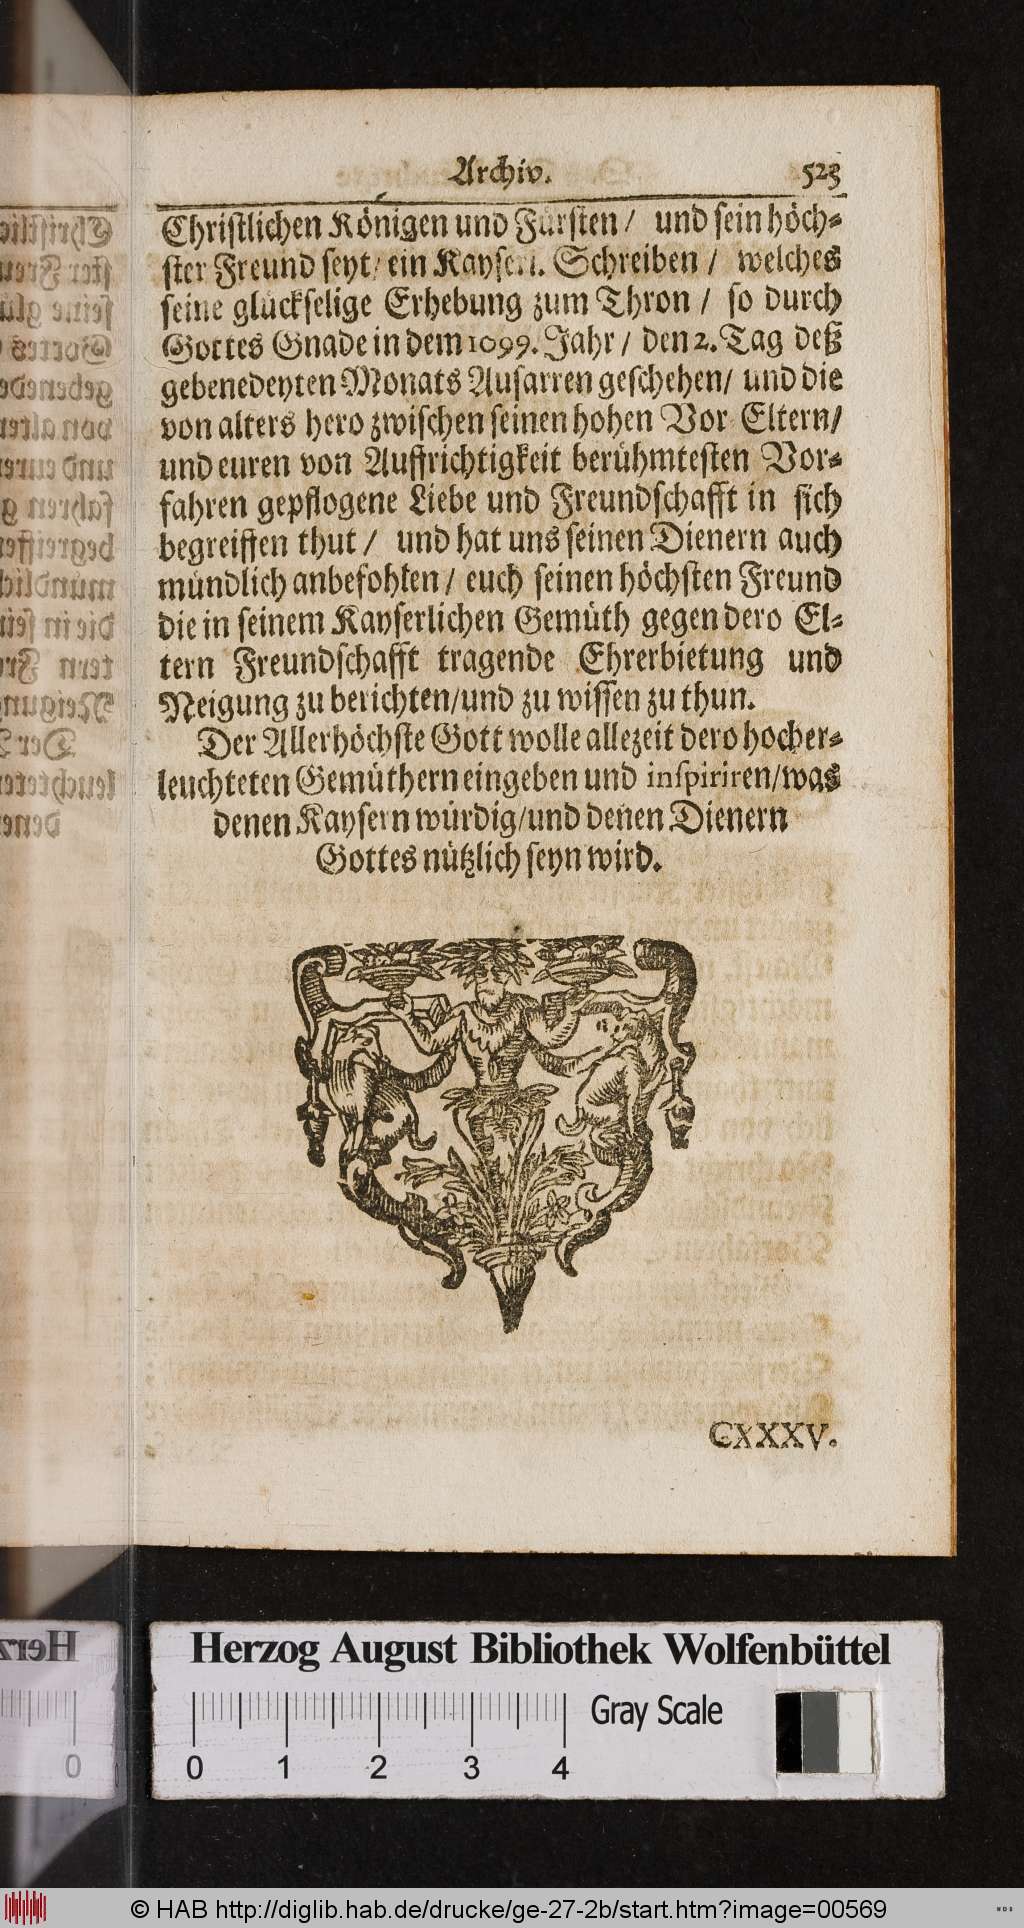 Archiv. 523
Christlichen Königen und Fürsten / und sein höch-
ster Freund seyt / ein Kayserl. Schreiben / welches
seine glückselige Erhebung zum Thron / so durch
Gottes Gnade in dem 1099. Jahr / den 2. Tag deß
gebenedeyten Monats Ausarren geschehen / und die
von alters hero zwischen seinen hohen Vor Eltern /
und euren von Auffrichtigkeit berühmtesten Vor-
fahren gepflogene Liebe und Freundschafft in sich
begreiffen thut / und hat uns seinen Dienern auch
mündlich anbefohlen / euch seinen höchsten Freund
die in seinem Kayserlichen Gemüth gegen dero El-
tern Freundschafft tragende Ehrerbietung und
Neigung zu berichten / und zu wissen zu thun.
Der Allerhöchste Gott wolle allezeit dero hocher-
leuchteten Gemüthern eingeben und inspiriren / was
denen Kaysern würdig / und denen Dienern
Gottes nützlich seyn wird.
CXXXV.
Herzog August Bibliothek Wolfenbüttel
Gray Scale
0 1 2 3 4
© HAB http://diglib.hab.de/drucke/ge-27-2b/start.htm?image=00569